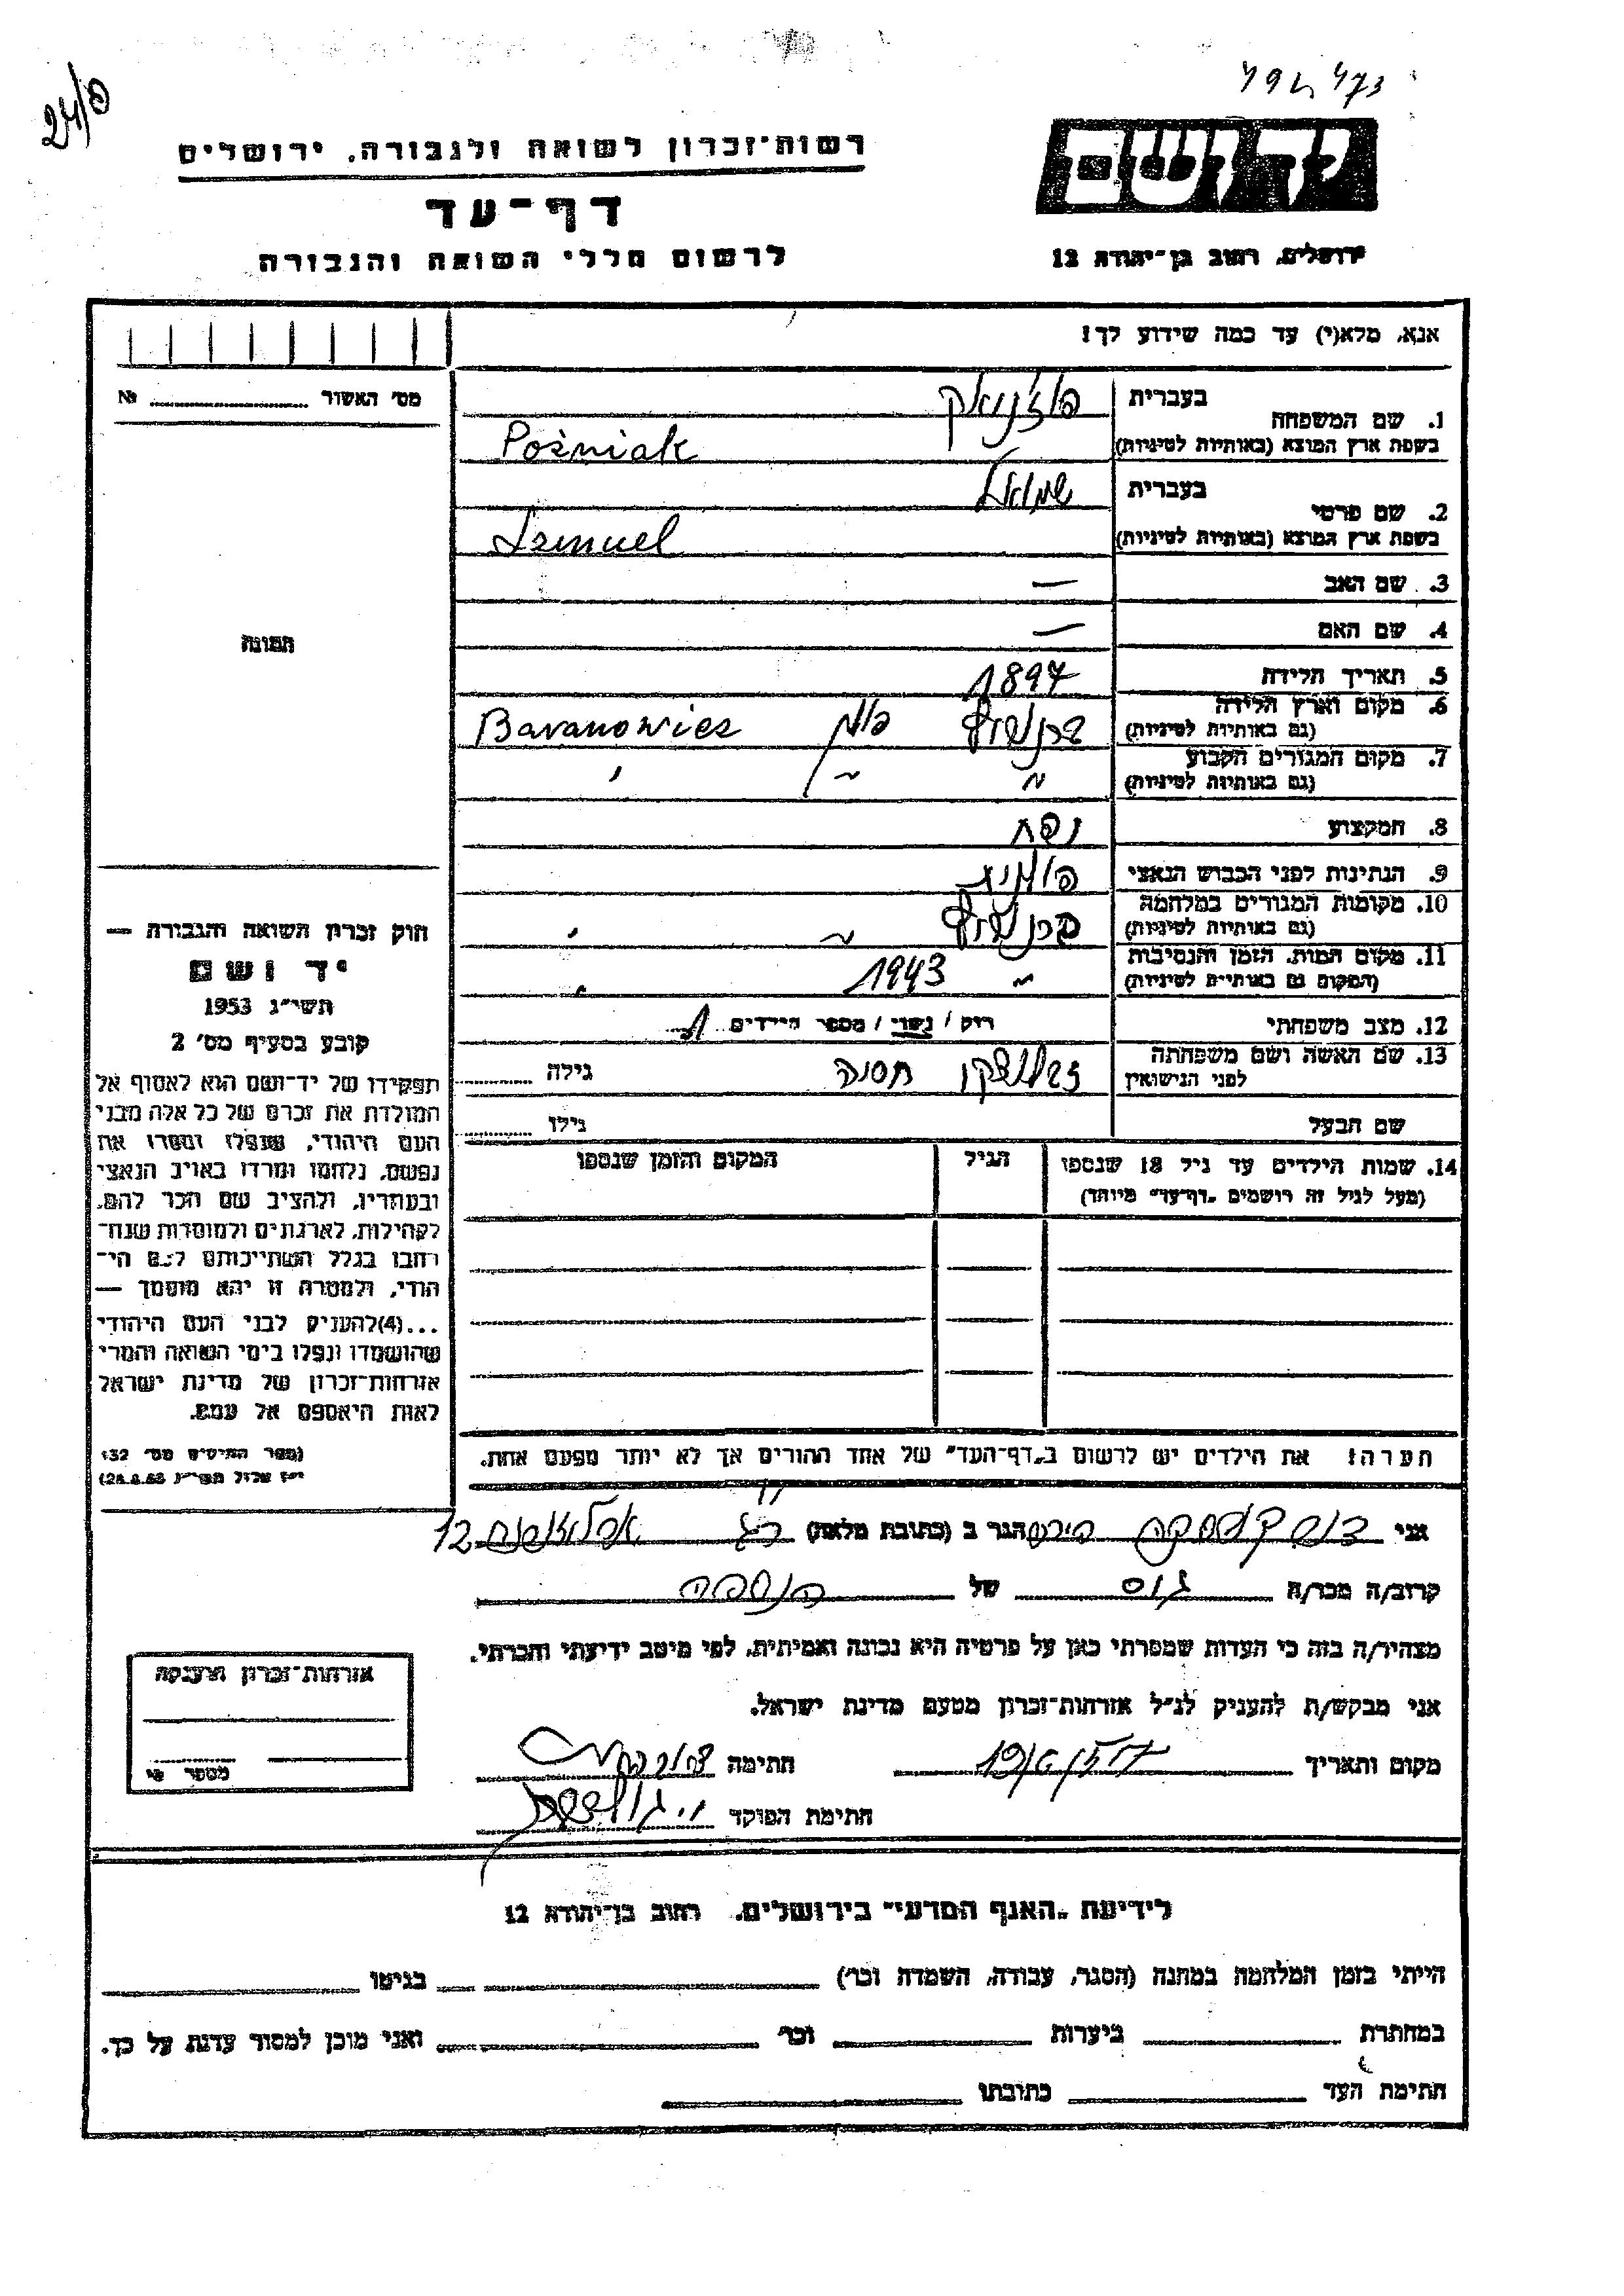 24/פ
רשות־זכרון לשואה ולגבורה, ירושלים
דף־עד
לרשום חללי השואה והגבורה
יד ושם
ירושלים, רחוב בן־יהודה 12
אנא, מלא(י) עד כמה שידוע לך!
מס׳ האשור № 
1. שם המשפחה בעברית פוז׳ניאק
בשפת ארץ המוצא (באותיות לטיניות) Poźniak
2. שם פרטי בעברית שמואל
בשפת ארץ המוצא (באותיות לטיניות) Szmuel
3. שם האב —
4. שם האם —
5. תאריך הלידה 1897
6. מקום וארץ הלידה (גם באותיות לטיניות) ברנוביץ פולין Baranowicz
7. מקום המגורים הקבוע (גם באותיות לטיניות) " " "
8. המקצוע נפח
9. הנתינות לפני הכבוש הנאצי פולנית
10. מקומות המגורים במלחמה (גם באותיות לטיניות) ברנוביץ " "
11. מקום המות, הזמן והנסיבות (המקום גם באותיות לטיניות) " 1943 "
12. מצב משפחתי רווק / נשוי / מספר הילדים 1
13. שם האשה ושם משפחתה לפני הנישואין חסנה גילה
שם הבעל גילו
14. שמות הילדים עד גיל 18 שנספו (מעל לגיל זה רושמים „דף־עד" מיוחד) הגיל המקום והזמן שנספו
הערה! את הילדים יש לרשום ב„דף־העד" של אחד ההורים אך לא יותר מפעם אחת.
התמונה
חוק זכרון השואה והגבורה —
יד ושם
תשי״ג 1953
קובע בסעיף מס׳ 2
תפקידו של יד־ושם הוא לאסוף אל
המולדת את זכרם של כל אלה מבני
העם היהודי, שנפלו ומסרו את
נפשם, נלחמו ומרדו באויב הנאצי
ובעוזריו, ולהציב שם וזכר להם,
לקהילות, לארגונים ולמוסדות שנח־
רבו בגלל השתייכותם לעם הי־
הודי, ולמטרה זו יהא מוסמך —
...(4)להעניק לבני העם היהודי
שהושמדו ונפלו בימי השואה והמרי
אזרחות־זכרון של מדינת ישראל
לאות היאספם אל עמם.
(ספר החוקים מס׳ 132
י״ז אלול תשי״ג 28.8.53)
אני הגר ב (כתובת מלאה) 12
קרוב/ה מכר/ה גיס של הנספה
מצהיר/ה בזה כי העדות שמסרתי כאן על פרטיה היא נכונה ואמיתית, לפי מיטב ידיעתי והכרתי.
אני מבקש/ת להעניק לנ״ל אזרחות־זכרון מטעם מדינת ישראל.
מקום ותאריך חתימה
חתימת הפוקד
אזרחות־זכרון הוענקה
מספר
לידיעת „האגף המדעי" בירושלים, רחוב בן־יהודה 12
הייתי בזמן המלחמה במחנה (הסגר, עבודה, השמדה וכו׳) בגיטו
במחתרת ביערות וכו׳ ואני מוכן למסור עדות על כך.
חתימת העד כתובתו